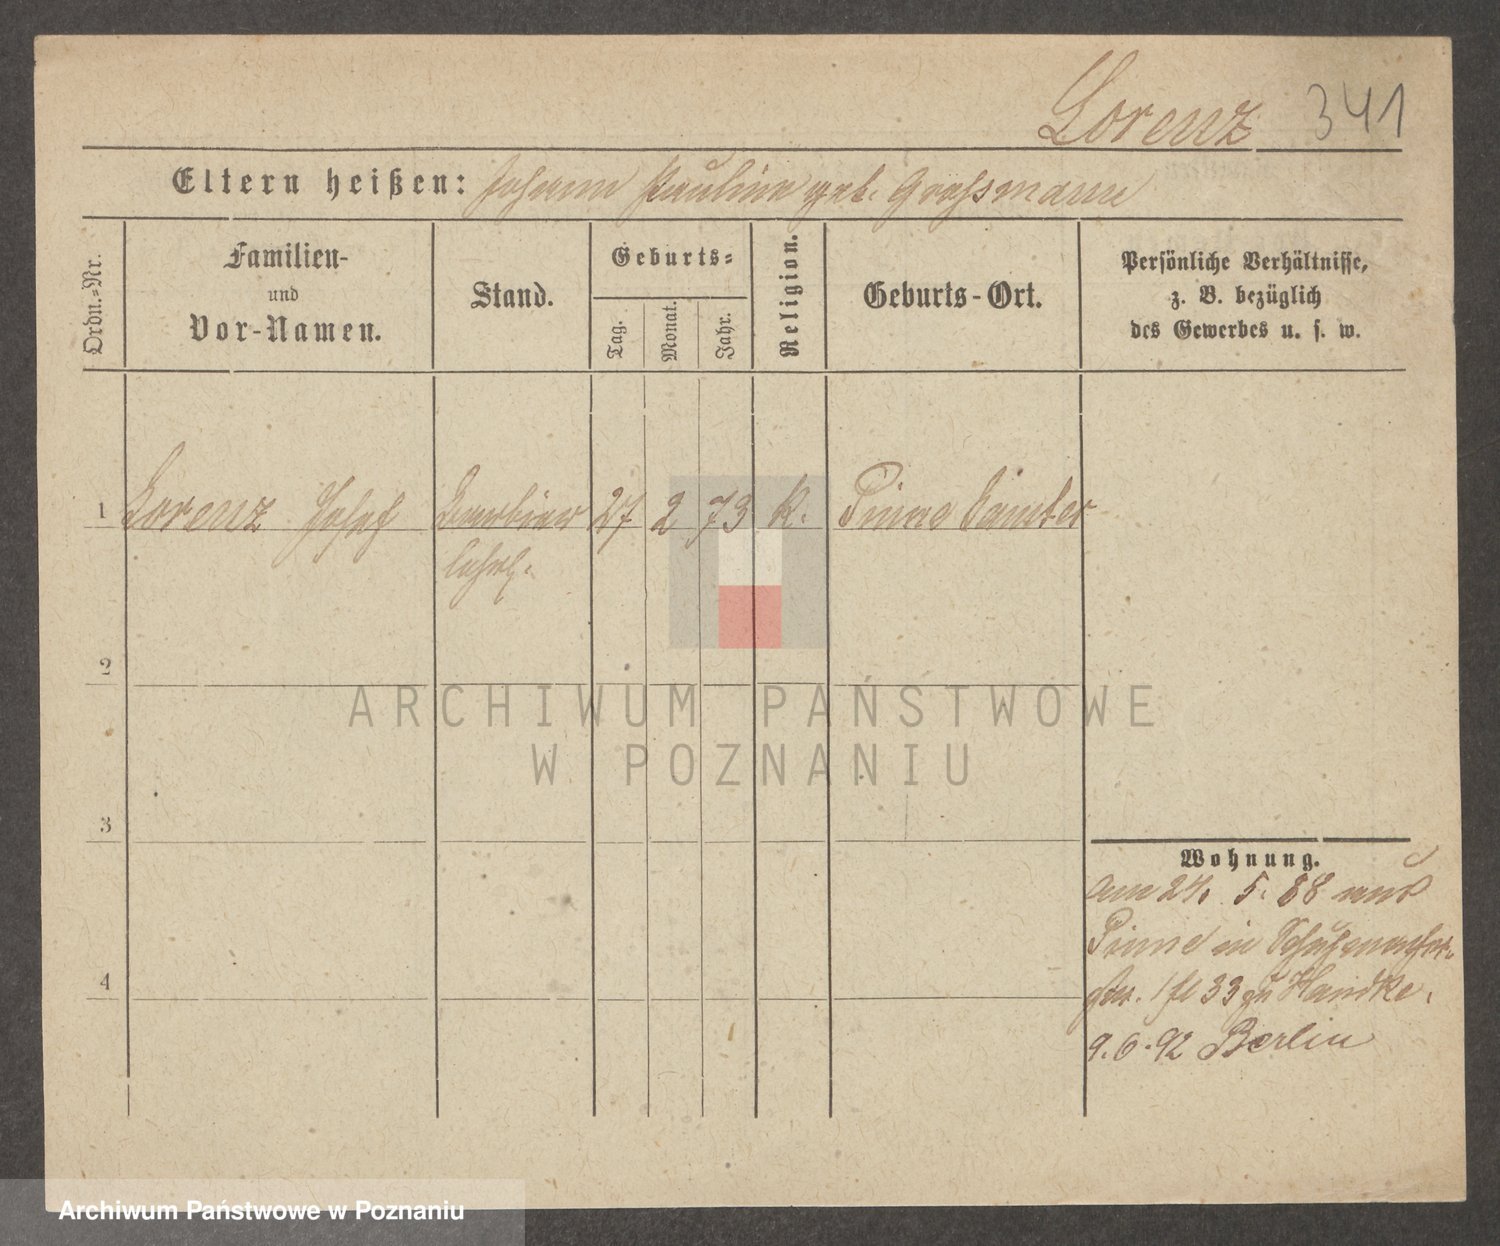 Lorenz 341
Eltern heißen: Johann Pauline geb. Grossmann
Ordn.=Nr.
Familien-
und
Vor-Namen.
Stand.
Geburts=
Tag.
Monat.
Jahr.
Religion.
Geburts-Ort.
Persönliche Verhältnisse,
z. B. bezüglich
des Gewerbes u. s. w.
1 Lorenz Josef Barbier 27 2 73 K. Pinne Samter
lehrl.
2
3
4
Wohnung.
am 24. 5. 88 aus
Pinne in
33 zu Handke.
9.6.92 Berlin
ARCHIWUM PAŃSTWOWE
W POZNANIU
Archiwum Państwowe w Poznaniu